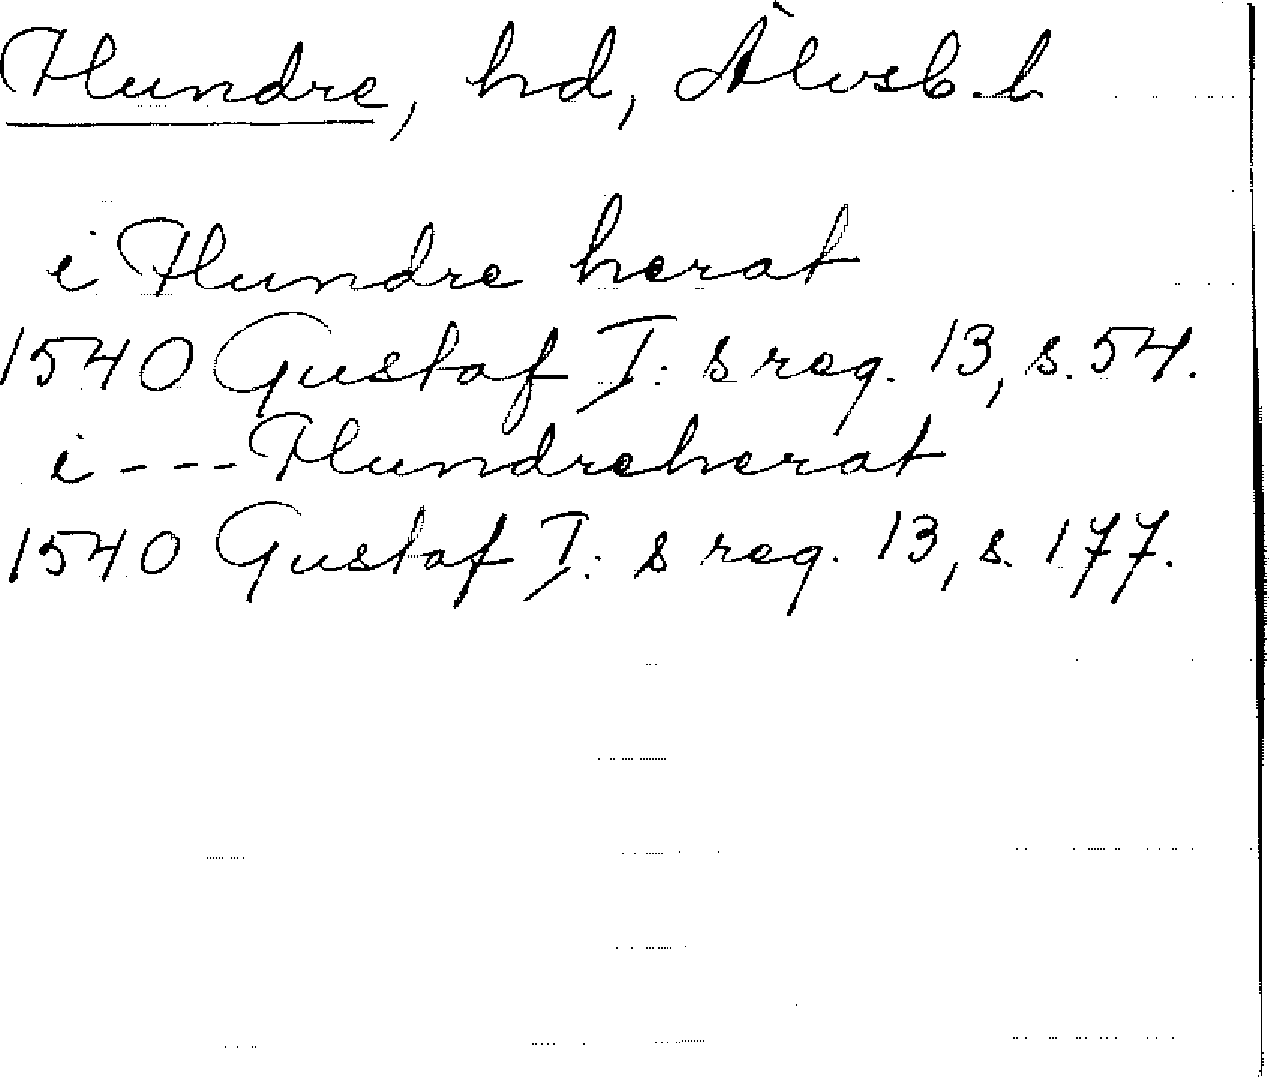 Flundre, hd, Älvsb. l
i Flundre herat
1540 Gustaf I:s reg. 13, s. 54.
i - - - - Flundreherat
1540 Gustaf I:s reg. 13, s. 177.